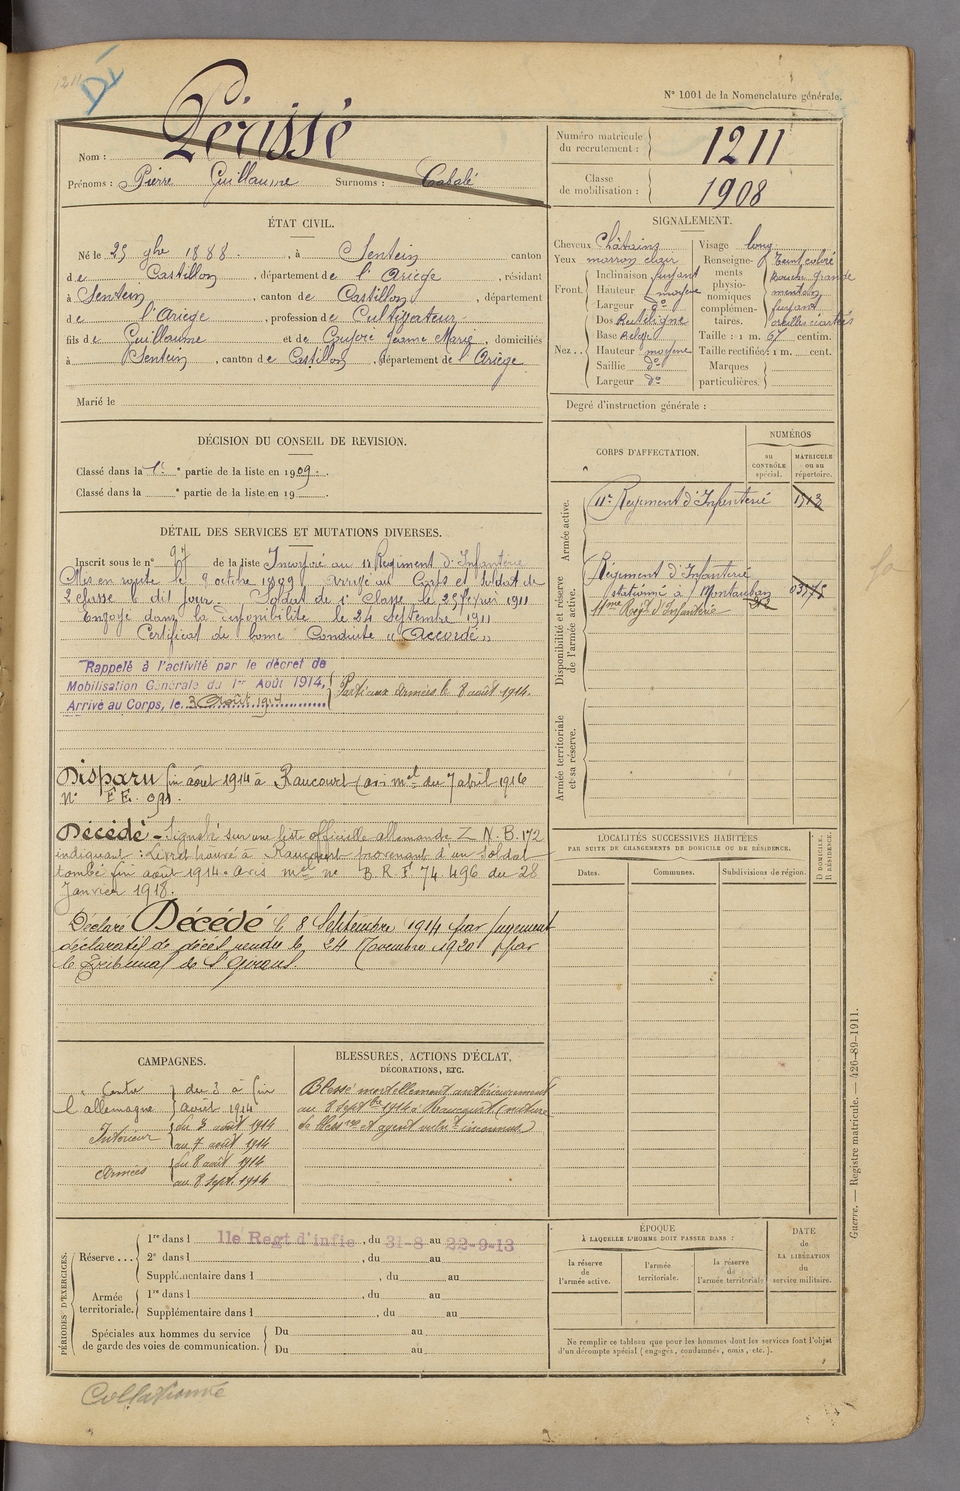 1211
Dé
N° 1001 de la Nomenclature générale.
Nom : Périssé
Prénoms : Pierre Guillaume Surnoms : Cabalé
Numéro matricule du recrutement : 1211
Classe de mobilisation : 1908
ÉTAT CIVIL.
Né le 25 9bre 1888, à Sentein, canton
de Castillon, département de l'Ariège, résidant
à Sentein, canton de Castillon, département
de l'Ariège, profession de Cultivateur
fils de Guillaume et de Jeanne Marie, domiciliés
à Sentein, canton de Castillon, département de l'Ariège
Marié le
SIGNALEMENT.
Cheveux Châtains
Yeux marron clair
Front. Inclinaison fuyant
Hauteur moyenne
Largeur do
Nez.. Dos Rectiligne
Base Relevé
Hauteur moyenne
Saillie do
Largeur do
Visage long
Renseignements physionomiques complémentaires. Teint coloré
Bouche grande
menton
fuyant
oreilles écartées
Taille : 1 m. 67 centim.
Taille rectifiée: 1 m. cent.
Marques particulières.
Degré d'instruction générale :
DÉCISION DU CONSEIL DE REVISION.
Classé dans la 1e partie de la liste en 1909.
Classé dans la e partie de la liste en 19
DÉTAIL DES SERVICES ET MUTATIONS DIVERSES.
Inscrit sous le n° de la liste Incorporé au 11 Régiment d'Infanterie
Mis en route le 9 octbre Arrivé au Corps et soldat de
2 classe le dit jour. Soldat de 1e Classe le 25 février 1911
Envoyé dans la disponibilité le 24 Septembre 1911
Certificat de bonne Conduite "Accordé"
Rappelé à l'activité par le décret de
Mobilisation Générale du 1er Août 1914,
Arrivé au Corps, le 3 Août 1914
Parti aux Armées le 8 août 1914.
Disparu fin août 1914 à Raucourt (avis mel du 7 abril 1916
N° F.E. 091.
Décédé - Signalé sur une liste officielle allemande Z.N.B. 172
indiquant : Livret trouvé à Raucourt provenant d'un soldat
tombé fin août 1914. Avis mel n° B.R.F. 74.496 du 28
Janvier 1918.
Déclaré Décédé le 8 Septembre 1914 par jugement
déclaratif de décès rendu le 24 Novembre 1920 par
le Tribunal de St Girons.
CORPS D'AFFECTATION.
NUMÉROS
au CONTRÔLE spécial.
MATRICULE ou au répertoire.
Armée active.
11e Régiment d'Infanterie
Disponibilité et réserve de l'armée active.
Régiment d'Infanterie
stationné à Montauban
11ème Régt d'Infanterie
Armée territoriale et sa réserve.
LOCALITÉS SUCCESSIVES HABITÉES
PAR SUITE DE CHANGEMENTS DE DOMICILE OU DE RÉSIDENCE.
Dates.
Communes.
Subdivisions de région.
D DOMICILE. R RÉSIDENCE.
CAMPAGNES.
Contre l'allemagne du 3 à fin
août 1914
Intérieur du 3 août 1914
au 7 août 1914
Armées du 8 août 1914
au 8 Sept. 1914
BLESSURES, ACTIONS D'ÉCLAT,
DÉCORATIONS, ETC.
Blessé mortellement antérieurement
au 8 Septbre 1914 à Raucourt (nature
de blessre et agent vulnt inconnus)
PÉRIODES D'EXERCICES.
Réserve ... 1re dans l 11e Regt d'infie, du 31-8 au 22-9-13
2e dans l , du au
Supplémentaire dans l , du au
Armée territoriale. 1re dans l , du au
Supplémentaire dans l , du au
Spéciales aux hommes du service de garde des voies de communication. Du au
Du au
ÉPOQUE
À LAQUELLE L'HOMME DOIT PASSER DANS :
la réserve de l'armée active.
l'armée territoriale.
la réserve de l'armée territoriale
DATE de LA LIBÉRATION du service militaire.
Ne remplir ce tableau que pour les hommes dont les services font l'objet
d'un décompte spécial (engagés, condamnés, omis, etc.).
Guerre. — Registre matricule. — 426-89-1911.
Collationné